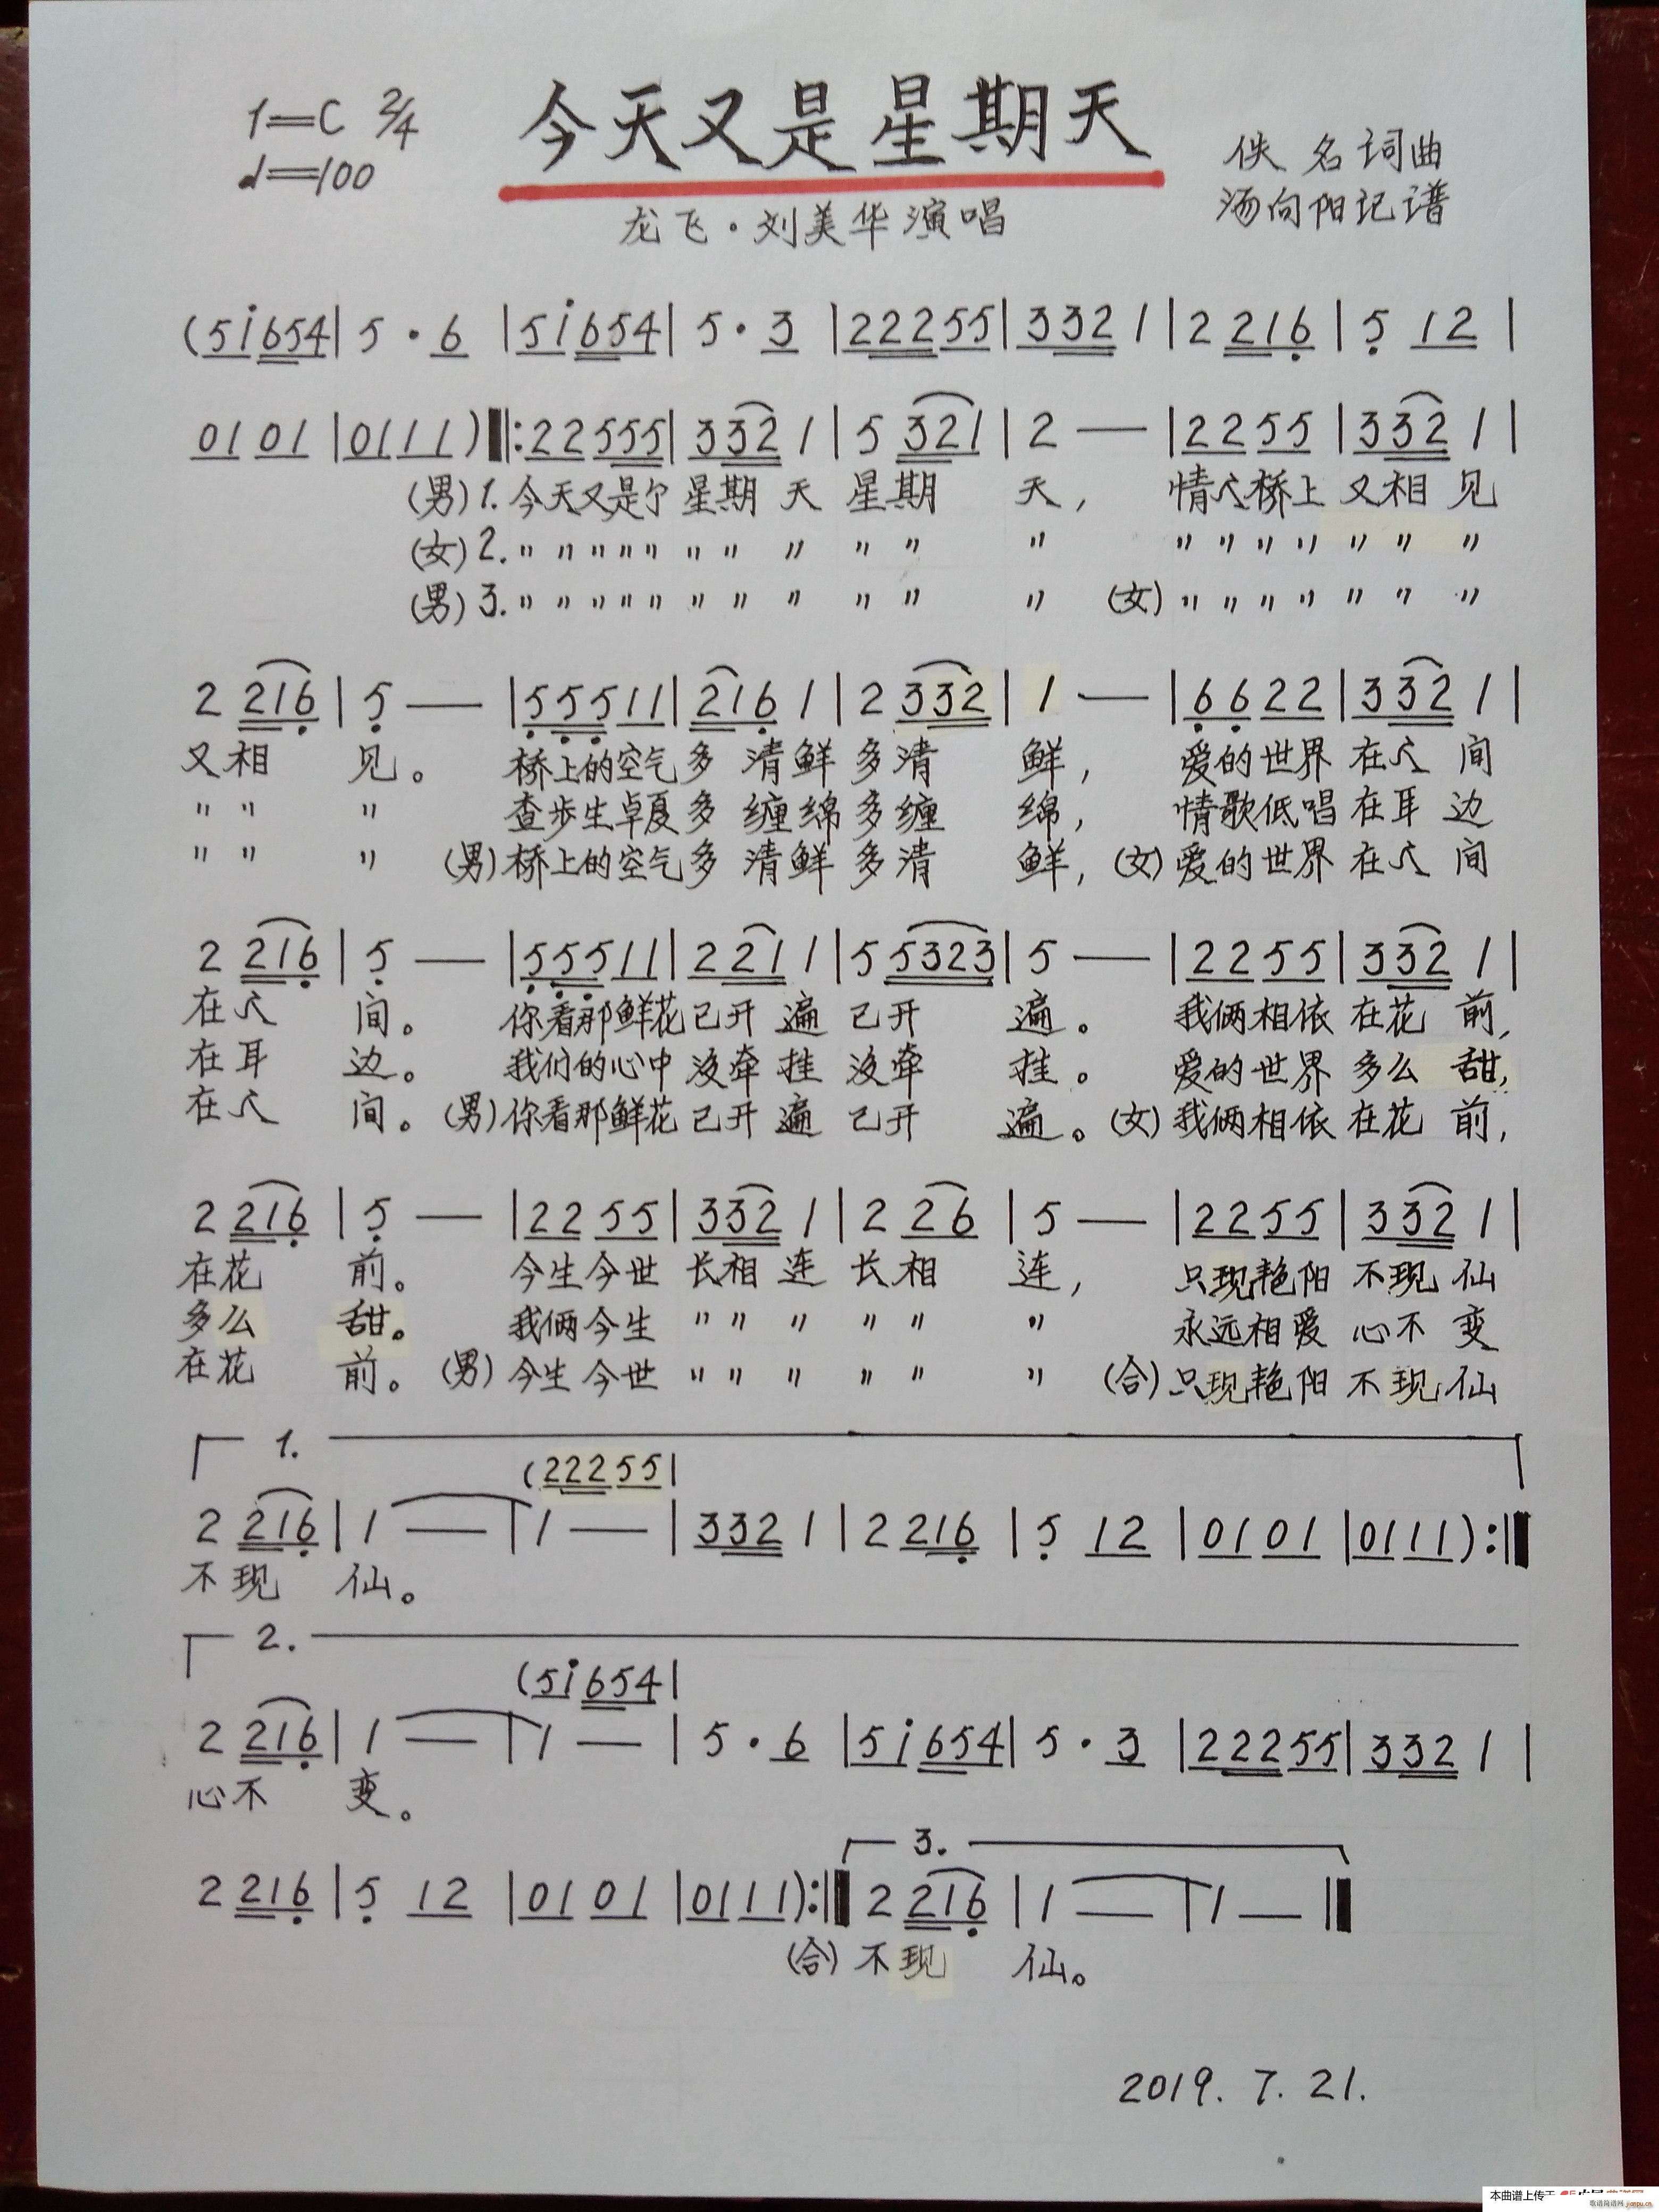 1=C 2/4
♩=100
今天又是星期天
佚 名词曲
汤向阳记谱
龙飞·刘美华演唱
(5i654|5·6|5i654|5·3|22255|3321|2216|5 12|
0101|0111)‖:22555|3321|5321|2—|2255|3321|
(男)1.今天又是个 星期 天 星期 天, 情人桥上 又相 见
(女)2. 〃 〃 〃 〃 〃 〃 〃 〃 〃 〃 〃 〃 〃 〃 〃 〃 〃 〃
(男)3. 〃 〃 〃 〃 〃 〃 〃 〃 〃 〃 〃 (女) 〃 〃 〃 〃 〃 〃 〃
2216|5—|55511|2161|2332|1—|6622|3321|
又相 见。 桥上的空气多 清鲜 多清 鲜, 爱的世界 在人 间
〃 〃 〃 查步生卓夏多 缠绵 多缠 绵, 情歌低唱 在耳 边
〃 〃 〃 (男)桥上的空气多 清鲜 多清 鲜,(女)爱的世界 在人 间
2216|5—|55511|2211|55323|5—|2255|3321|
在人 间。 你看那鲜花已开 遍 已开 遍。 我俩相依 在花 前,
在耳 边。 我们的心中 没牵 挂 没牵 挂。 爱的世界 多么 甜,
在人 间。(男)你看那鲜花 已开 遍 已开 遍。(女)我俩相依 在花 前,
2216|5—|2255|3321|226|5—|2255|3321|
在花 前。 今生今世 长相 连 长相 连, 只现艳阳 不现 仙
多么 甜。 我俩今生 〃 〃 〃 〃 〃 〃 永远相爱 心不 变
在花 前。(男)今生今世 〃 〃 〃 〃 〃 〃 (合)只现艳阳 不现 仙
1.
(22255|
2216|1—|1—|3321|2216|5 12|0101|0111):‖
不现 仙。
2.
(5i654|
2216|1—|1—|5·6|5i654|5·3|22255|3321|
心不 变。
3.
2216|5 12|0101|0111):‖2216|1—|1—‖
(合)不现 仙。
2019. 7. 21.
本曲谱上传于
歌谱简谱网
jianpu.cn